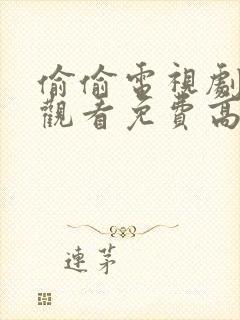 偷偷電視劇
觀看免費高
連茅